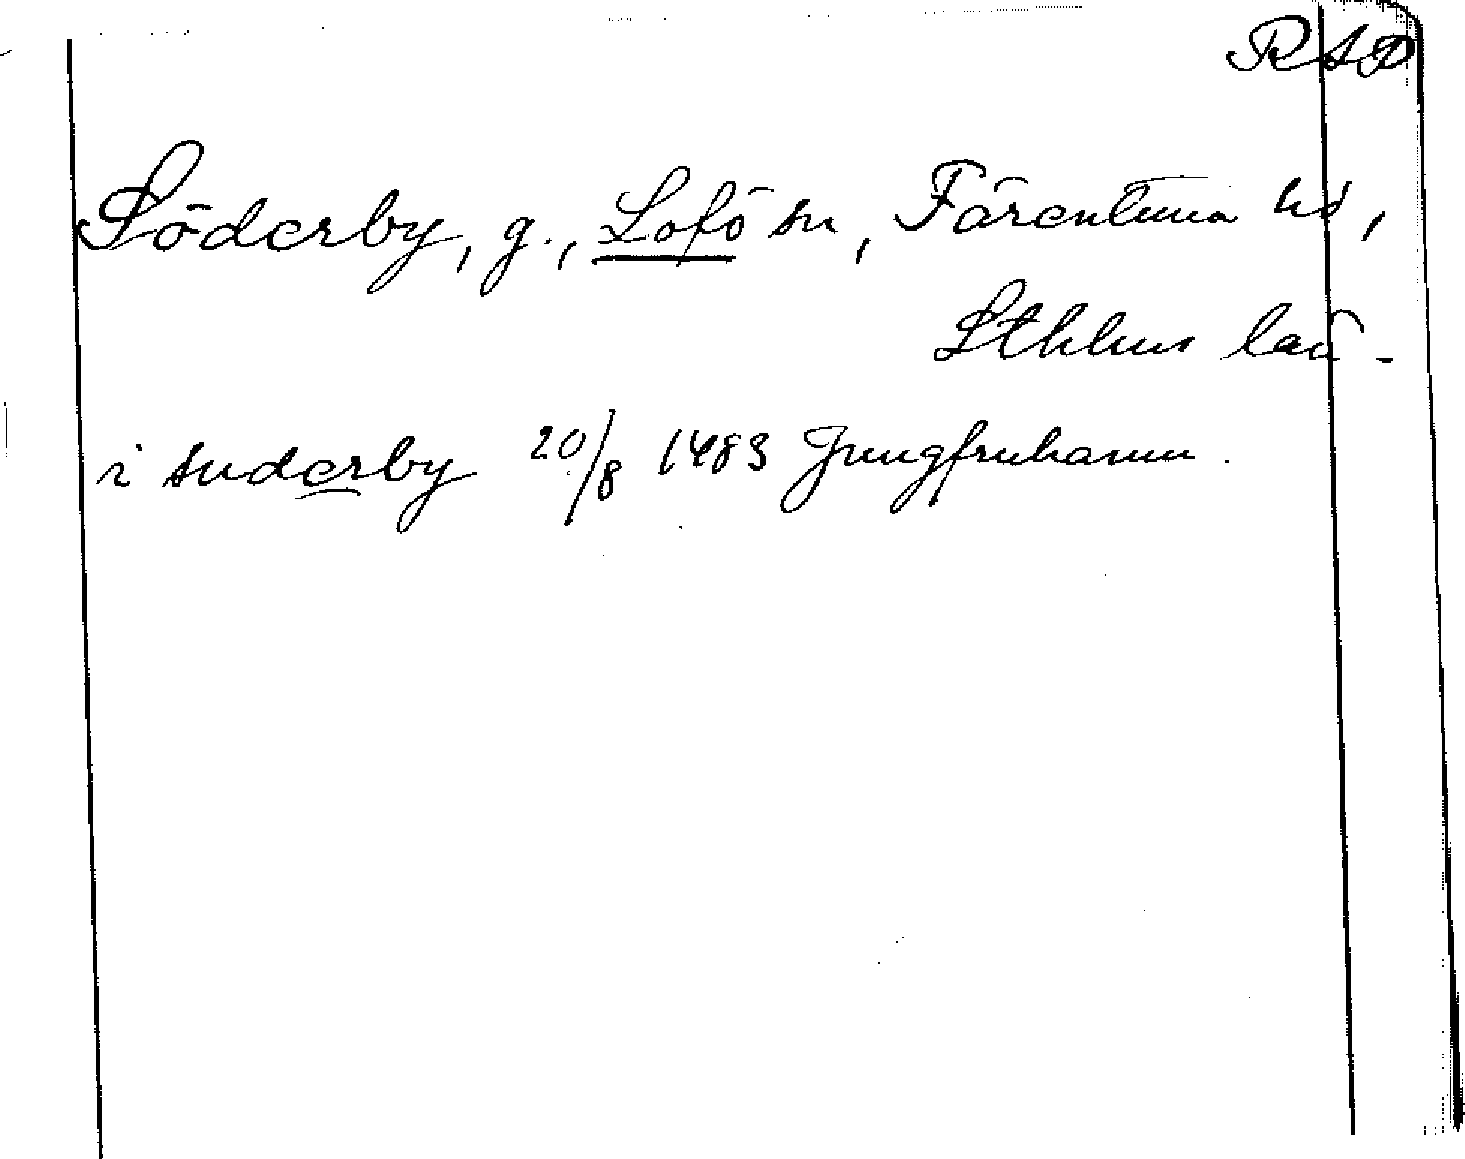 RAP
Söderby, g., Lofö sn, Färentuna hd,
Sthlms län.
i suderby 20/8 1483 Jungfruhamn.